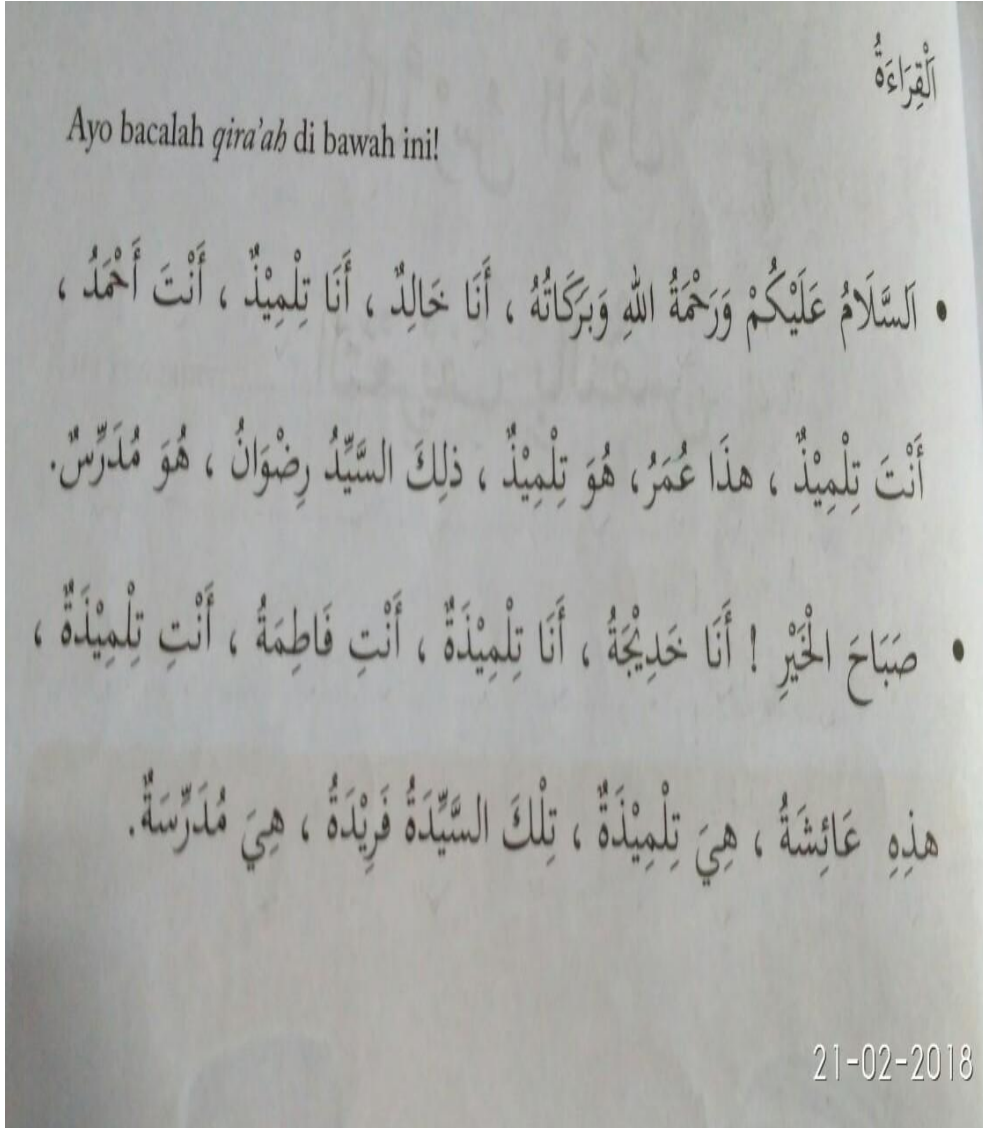 اَلْقِرَاءَةُ
Ayo bacalah qira'ah di bawah ini!
• اَلسَّلَامُ عَلَيْكُمْ وَرَحْمَةُ اللهِ وَبَرَكَاتُهُ ، أَنَا خَالِدٌ ، أَنَا تِلْمِيْذٌ ، أَنْتَ أَحْمَدُ ،
أَنْتَ تِلْمِيْذٌ ، هذَا عُمَرُ، هُوَ تِلْمِيْذٌ ، ذلِكَ السَّيِّدُ رِضْوَانُ ، هُوَ مُدَرِّسٌ.
• صَبَاحَ الْخَيْرِ ! أَنَا خَدِيْجَةُ ، أَنَا تِلْمِيْذَةٌ ، أَنْتِ فَاطِمَةُ ، أَنْتِ تِلْمِيْذَةٌ ،
هذِهِ عَائِشَةُ ، هِيَ تِلْمِيْذَةٌ ، تِلْكَ السَّيِّدَةُ فَرِيْدَةُ ، هِيَ مُدَرِّسَةٌ.
21-02-2018